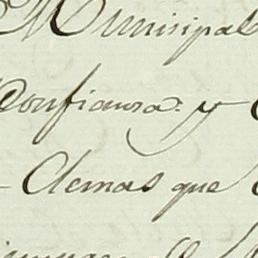 Municipal
Confianza. y
demas que